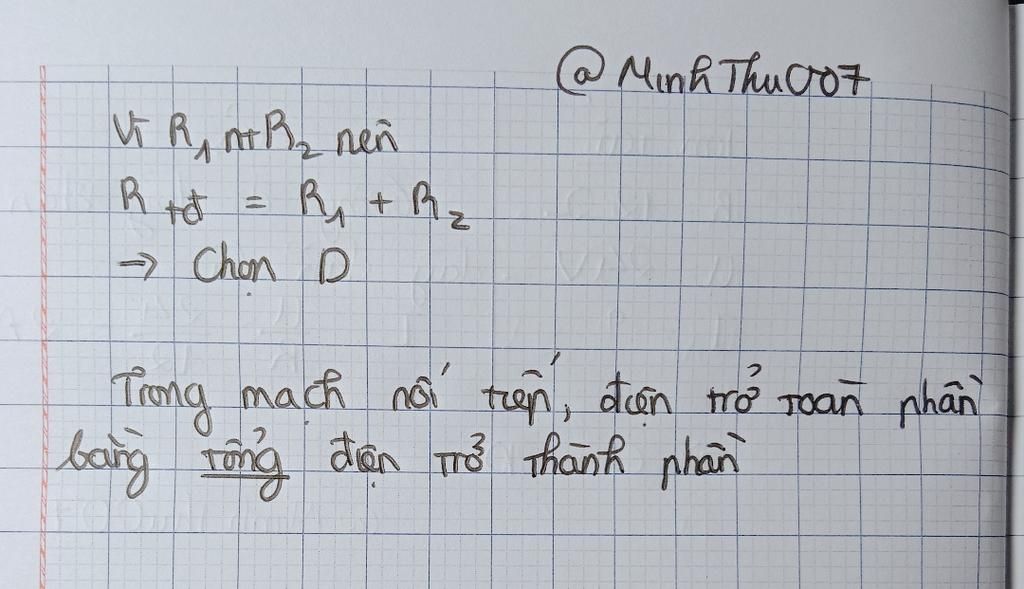 @ MinhThu007
Vì R₁ nt R₂ nên
R tđ = R₁ + R₂
→ Chọn D
Trong mạch nối tiếp, điện trở toàn phần
bằng tổng điện trở thành phần